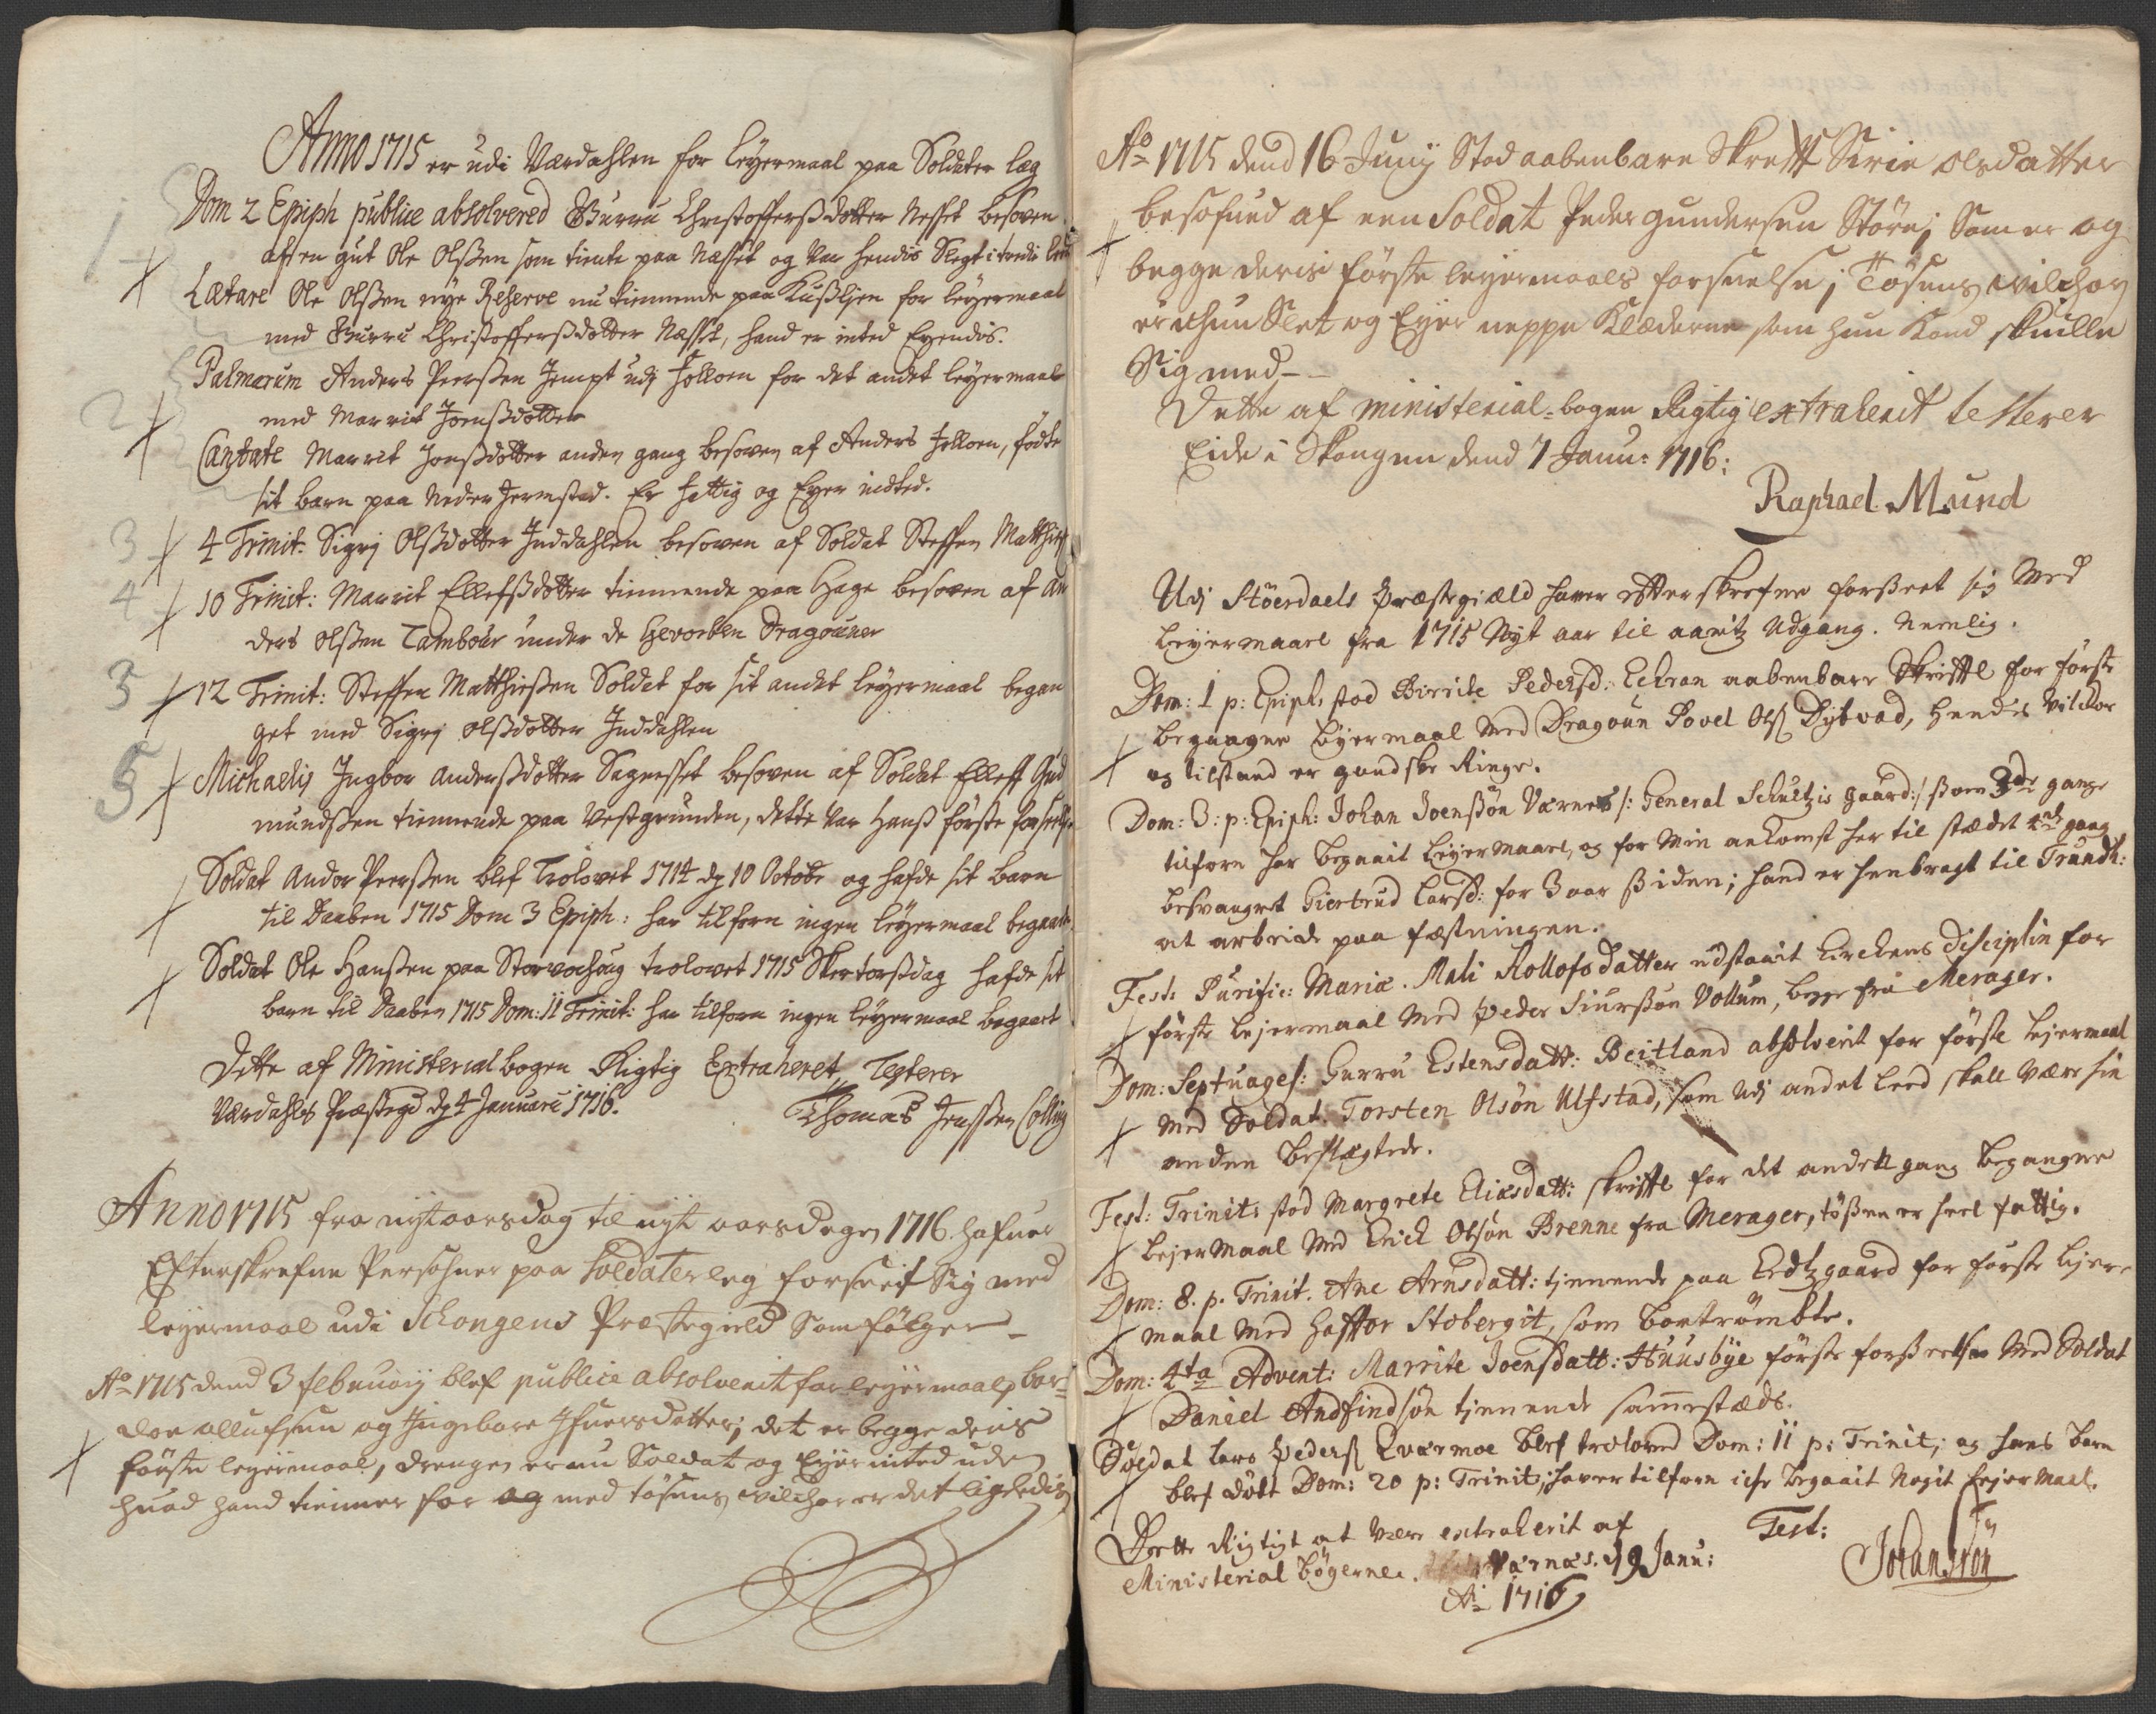 Anno 1715 er udi Værdahlen for leyermaal paa Soldater læg
Dom 2 Epiph publice absolvered Gurru Christoffersdotter Nesset besoven
af en gut Ole Olßen som tiente paa Næsset og var hendis Slegt i tredie leed
1
Lætare Ole Olßen nye Reserve nu tiennende paa Kußlien for leyermaal
med Gurru Christofferßdotter Næsset, hand er inted Eyendis.
Palmarum Anders Peerßen Jempt udj Holloen for det andet leyermaal
2
med Marrit Joenßdotter
Cantate Marrit Jonßdotter anden gang besoven af Anders Holloen, fødte
sit barn paa Neder Jermstad. Er fattig og Eyer indted.
3 4 Trinit: Sigrj Olßdotter Inddahlen besoven af Soldat Steffen Matthiß
4 10 Trinit: Marrit Ellefßdotter tiennende paa Hage besoven af An
ders Olßen Tambour under de Gevorben Dragouner
5 12 Trinit: Steffen Matthießen Soldat for sit andet leyermaal began
get med Sigrj Olßdotter Inddahlen
5 Michaelis Ingbor Anderßdotter Sagnesset besoven af Soldat Elleff Gud
mundßen tiennende paa Vestgrunden, dette var Hanß første forseelse
Soldat Andor Peerßen blef Trolovet 1714 dj 10 Octobr og hafde sit barn
til Daaben 1715 Dom 3 Epiph: har tilforn ingen leyermaal begaaet
Soldat Ole Hanßen paa Storvochoug trolovet 1715 Skertorßdag hafde sit
barn til Daaben 1715 Dom: 11 Trinit: har tilforn ingen leyermaal begaaet
Dette af Ministerial bogen Rigtig Extraheret Testerer
Værdahls Præstegd dj 4 Januarii 1716.
Thomas Jenßen Collin
Anno 1715 fra nyt aarsdag til nyt aarsdagen 1716 hafuer
Efterskrefne Persohner paa Soldaterleg forseet Sig med
leyermaal udi Schongens Prestegield Som følger
Ao 1715 dend 3 februarij blef publice absolverit for leyermaal, Bar
dor ollufsøn og Ingebore Ifuersdatter; det er begge deris
første leyermaal, drengen er nu Soldat og Eyer inted uden
huad hand tienner for og med tøsens vilchor er det ligeledis
Ao 1715 dend 16 Junij Stod aabenbare Skrifft Sirie olsdatter
besofued af een Soldat Peder gundersen Støre; Som er og
begge deris første leyermaals forseelse; Tøsens vilchor
er ichun Slet og Eyer neppe Klæderne som hun Kand skiulle
Sig med
Dette af ministerial-bogen Rigtig extraherit testerer
Eide i Skongen dend 7 Janu: 1716:
Raphael Mund
Udj Størdaels Præstegiæld haver efterskrefne forßeet sig Med
Leyermaael fra 1715 Nyt aar til aaritz Udgang. Nemlig.
Dom: 1 p: Epiph: stod Birrite Pedersd: Echran aabenbare Skriffte for første
begaagne Leyermaal Med Dragoun Povel Ols Dybvad, hendes vilckor
og tilstand er gandske Ringe.
Dom: 3: p: Epiph: Johan Joenßøn Værnes /: General Schultzis gaard:/ ßom 3de gange
tilforn har begaait Leyermaael, og for Min ankomst her til stædet 4de gang
besvangret Giertrud Larsd: for 3 aar ßiden; hand er henbragt til Trundh:
at arbeide paa fæstningen.
Fest: Purific: Mariæ. Mali Rollofsdatter udstaait Kirckens Disciplin for
første Lejermaal Med Peder Siurßøn Vollum, begge fra Merager.
Dom: Septuages: Gurru Estensdatt: Beitland absolverit for første Lejermaal
Med Soldat Torsten Olsøn Ulfstad, som udj andet Leed skall være hin
anden beslægtede.
Fest: Trinit: stod Margrete Eliæsdatt: skriffte for det andet gang begangne
LejerMaal Med Erick Olsøn Brenne fra Merager, tøßen er heel fattig.
Dom: 8. p. Trinit. Ane Arnsdatt: tjenende paa Eedtzgaard for første Lejer-
maal Med Haffor Stobergit, som bortrømbte.
Dom: 4ta Advent: Marrite Joensdatt: Huusbye første forßeelse Med Soldat
Daniel Andfindsøn tjenende sammestæds.
Soldat Lars Peders Qvarmoe blef troloved Dom: 11 p: Trinit; og hans barn
blef døbt Dom: 20 p: Trinit; haver tilforn icke begaait Nogit LejerMaal.
Dette Rigtigt at være extraherit af
Ministerial bøgerne. Værnæs. d 9 Janu:
Ao 1716
Test: